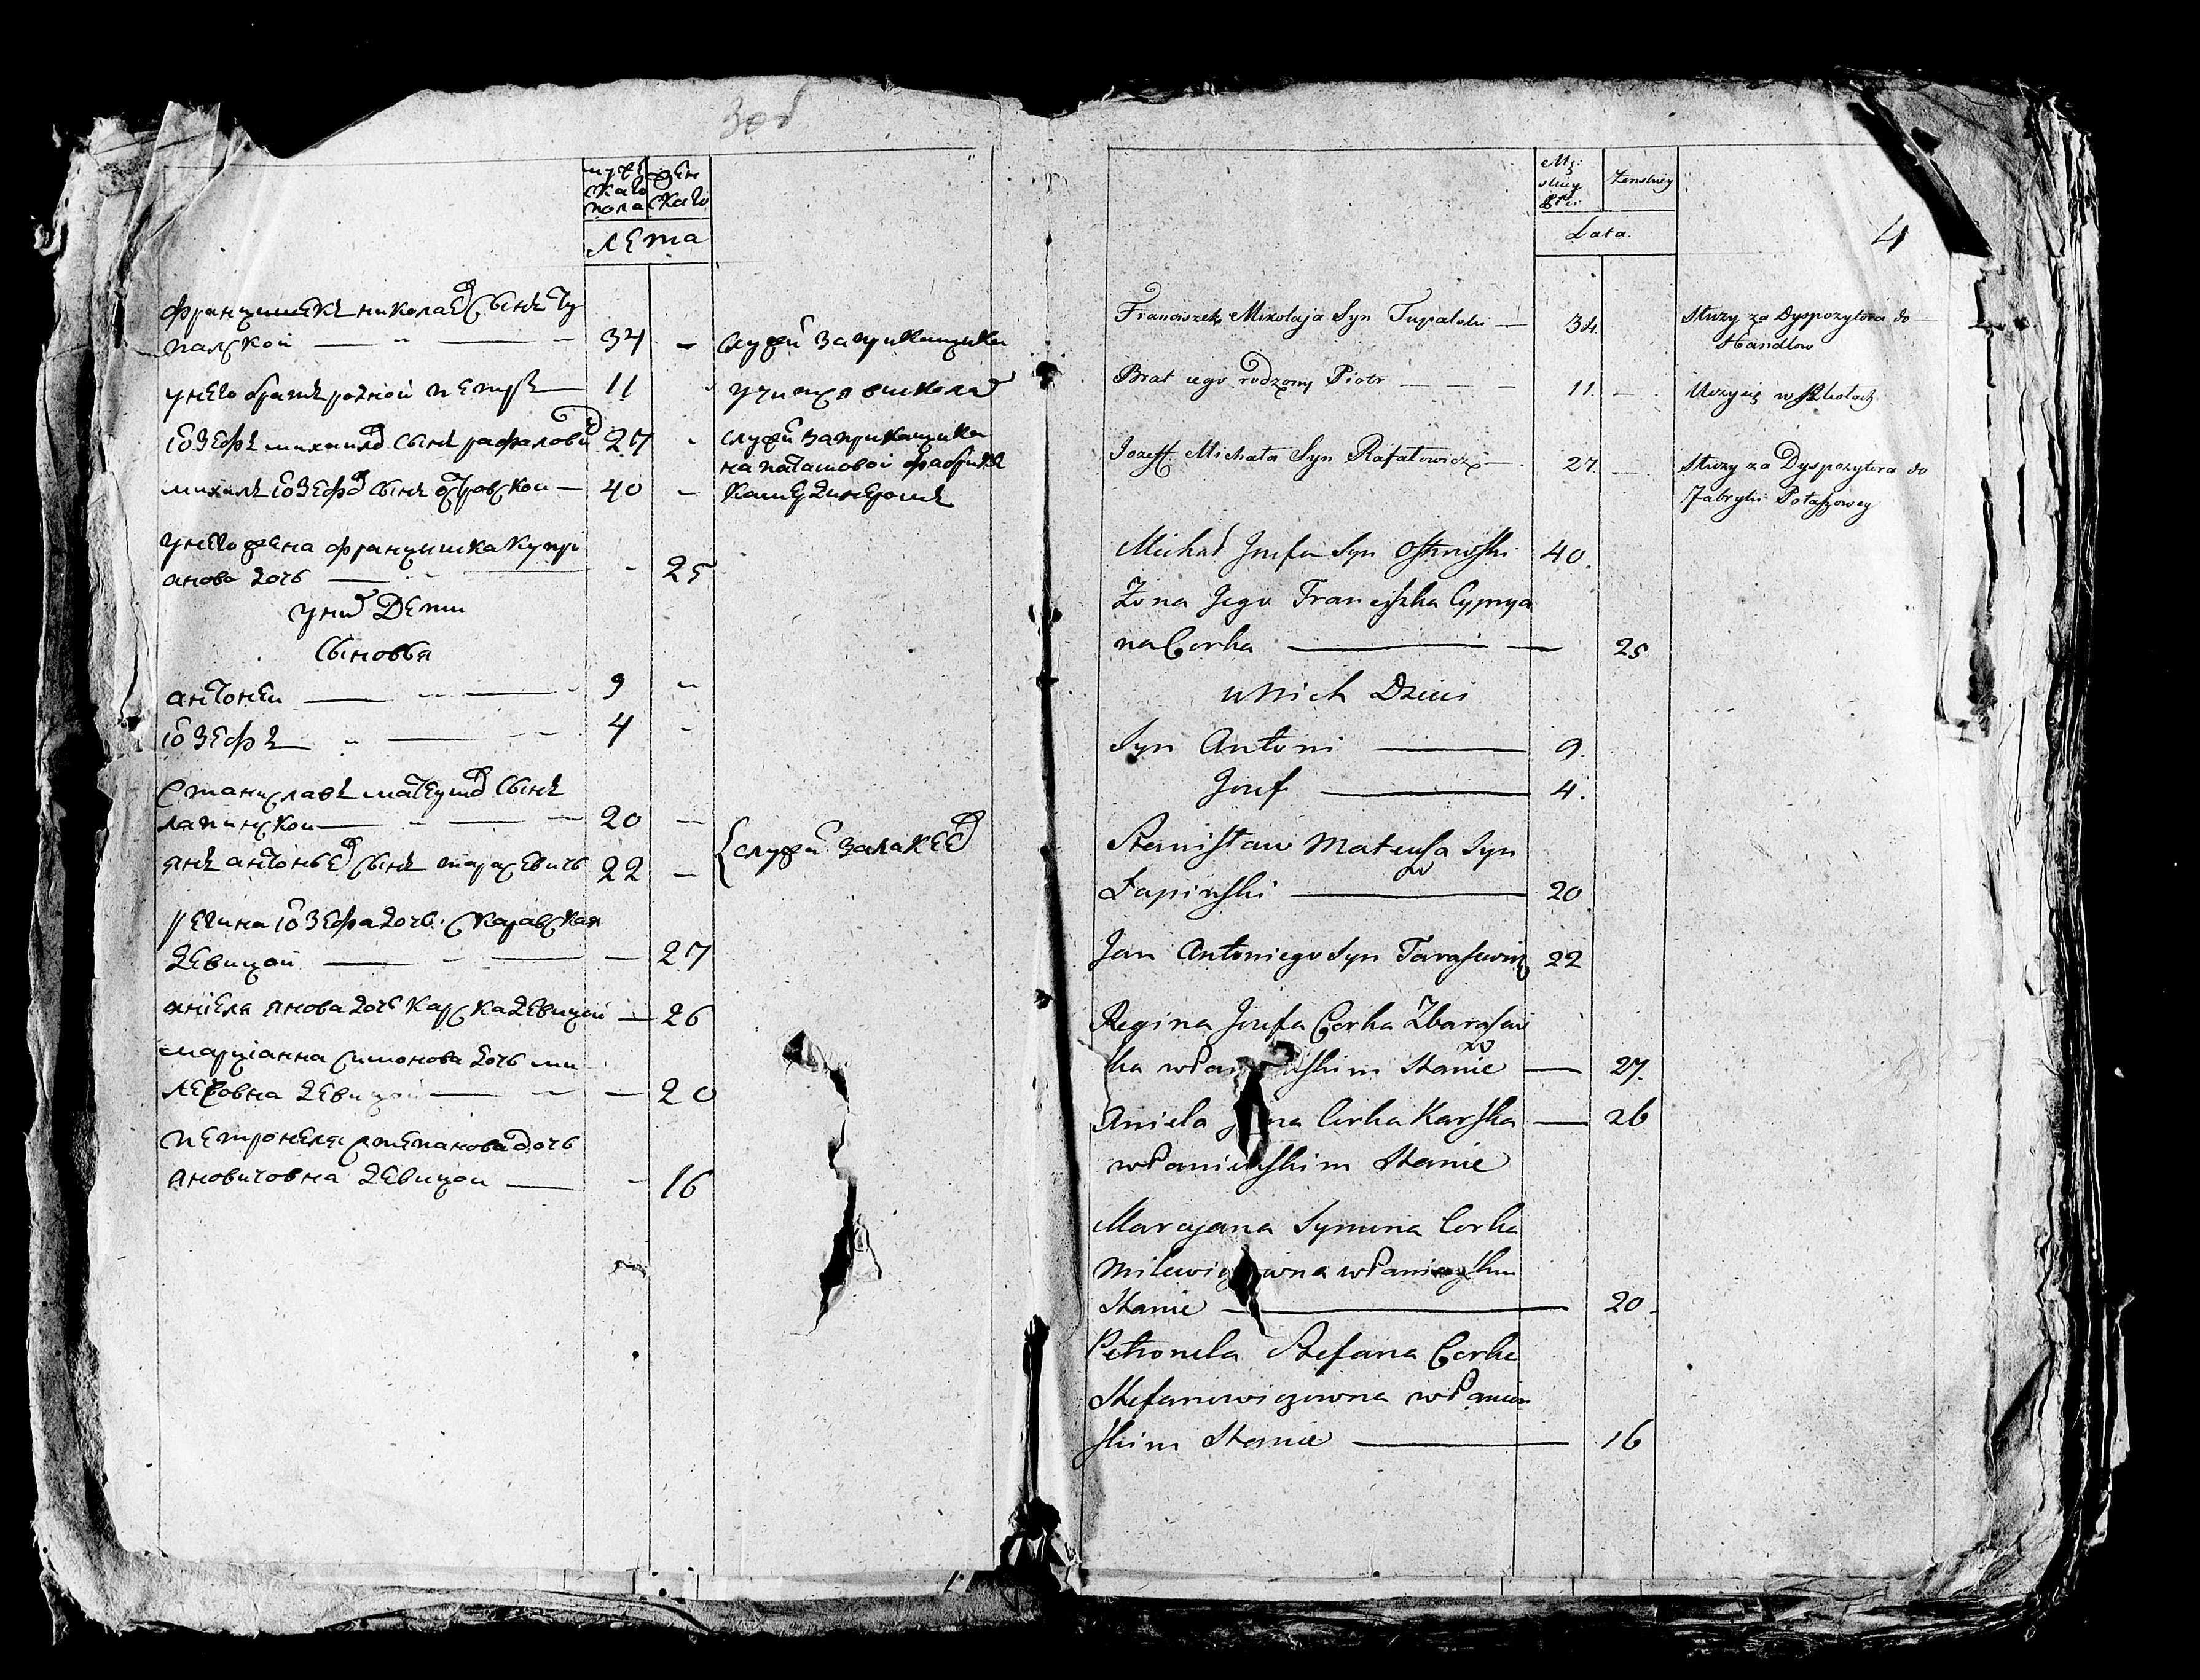 мужескаго пола
женскаго
лета
францишекъ николаевъ сынъ ту
палской 34
служи за прикащика
унего братъ родной петръ 11
учится вшколах
іозефъ михаилов сынъ рафалович 27
служи за прикащика
на паташовой фабрике
михалъ іозефов сынъ островской 40
камердинеромъ
унего жена францишка купри
анова дочь 25
уних Дети
сыновья
антоней 9
іозефъ 4
станиславъ матеушов сынъ
лапинской 20
служи залакеев
янъ антоньев сынъ тарасевичъ 22
регина іозефа дочь
девицой 27
аніеля янова дочь карска девицой 26
марціанна симонова дочь ми
девицой 20
петронеля степанова дочь
девицой 16
Mę:
skiey
płci
Żenskiey
Lata.
4
Franciszek Mikołaja Syn Tupalski 34.
Służy za Dyspozytora do
Handlow
Brat iego rodzony Piotr 11.
Uczy się w Szkołach
Jozeff Michała Syn Rafałowicz 27.
Służy za Dyspozytora do
Fabryki Potaszowey
Michał Jozefa Syn Ostrowski 40.
Żona Jego Franciszka Cyprya
na Corka 25
u Nich Dzieci
Syn Antoni 9.
Jozef 4.
Stanisław Mateusza Syn
Łapinski 20
Jan Antoniego Syn Tarasewicz 22
Regina Jozefa Corka Zbarasew
ska w Stanie 27.
Aniela Corka Karska 26
w Panienskim Stanie
Maryjana Symona Corka
w Panienskim
Stanie 20
Petronela Stefana Corka
Stefanowiczowna w Panien
skim Stanie 16